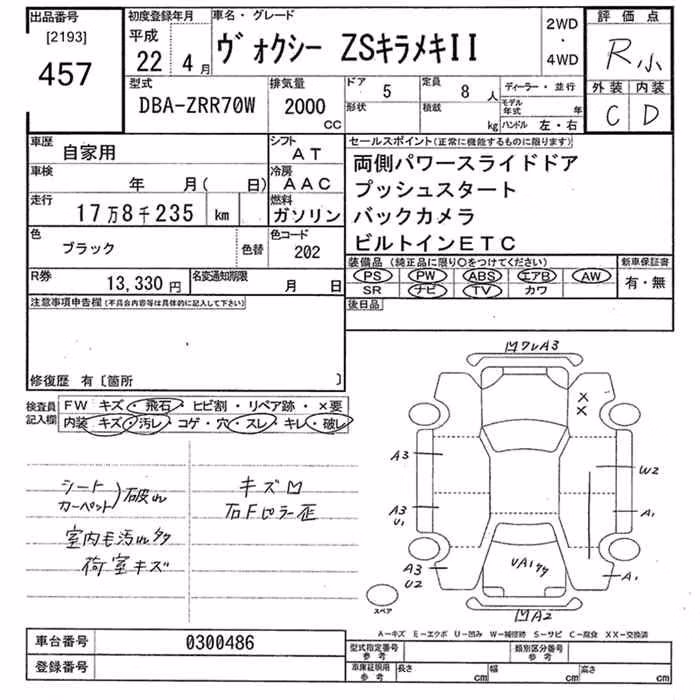 出品番号
[2193]
457
初度登録年月
平成
22 4月
車名・グレード
ヴォクシー ZSキラメキII
2WD
・
4WD
評価点
R小
外装 内装
C D
型式
DBA-ZRR70W
排気量
2000
CC
ドア
5
定員
8 人
形状
積載
kg
ディーラー・並行
モデル年式 年
ハンドル 左・右
車歴
自家用
シフト
AT
車検
年 月( 日)
冷房
AAC
走行
17万8千235 km
燃料
ガソリン
色
ブラック
色替
色コード
202
R券
13,330円
名変通知期限
月 日
セールスポイント(正常に機能するものに限ります)
両側パワースライドドア
プッシュスタート
バックカメラ
ビルトインETC
装備品(純正品に限り○をつけてください)
新車保証書
PS PW ABS エアB AW
有・無
SR ナビ TV カワ
後日品
注意事項申告欄(不具合内容等は具体的に記入して下さい)
修復歴 有〔箇所 〕
検査員
記入欄
FW キズ・飛石・ヒビ割・リペア跡・×要
内装 キズ・汚レ・コゲ・穴・スレ・キレ・破レ
シート
カーペット)破れ
室内毛汚れタタ
荷室キズ
キズ凹
右Fピラー歪
凹ワレA3
X
X
A3
W2
A3
U1
A1
A3
U2
UA1タタ
A1
スペア
凹A2
A−キズ E−エクボ U−凹み W−補修跡 S−サビ C−腐食 XX−交換済
車台番号
0300486
登録番号
型式指定番号
参考
類別区分番号
参考
車庫証明用
参考
長さ cm 幅 cm 高さ cm